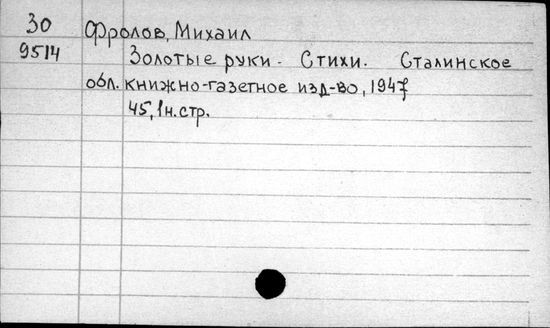 30 Фролов, Михаил
9514 Золотые руки. Стихи. Сталинское
обл. книжно-газетное изд-во, 1947
45, 1 н. стр.